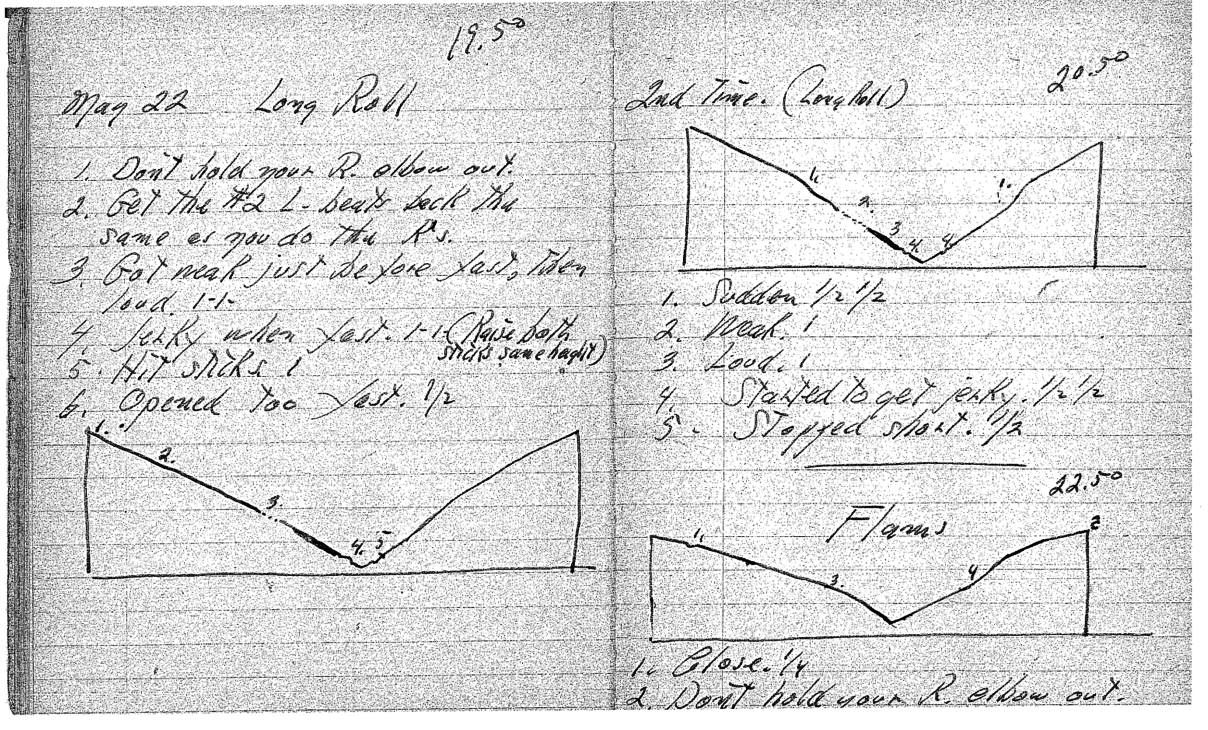 19.50
May 22 Long Roll
1. Don't hold your R. elbow out.
2. Get the #2 L-beats back the
same as you do the R's.
3. Got weak just before fast, then
loud. 1-1-
4. Jerky when fast. 1-1-(Raise both
sticks same height)
5. Hit sticks 1
6. Opened too fast. 1/2
1.
2.
3.
4. 5
20.50
2nd Time. (Long Roll)
1.
2.
3
4
4
1.
1. Sudden 1/2 1/2
2. Weak. 1
3. Loud. 1
4. Started to get jerky. 1/2 1/2
5. Stopped short. 1/2
22.50
Flams
1.
3.
4
2
1. Close. 1/4
2. Don't hold your R. elbow out.